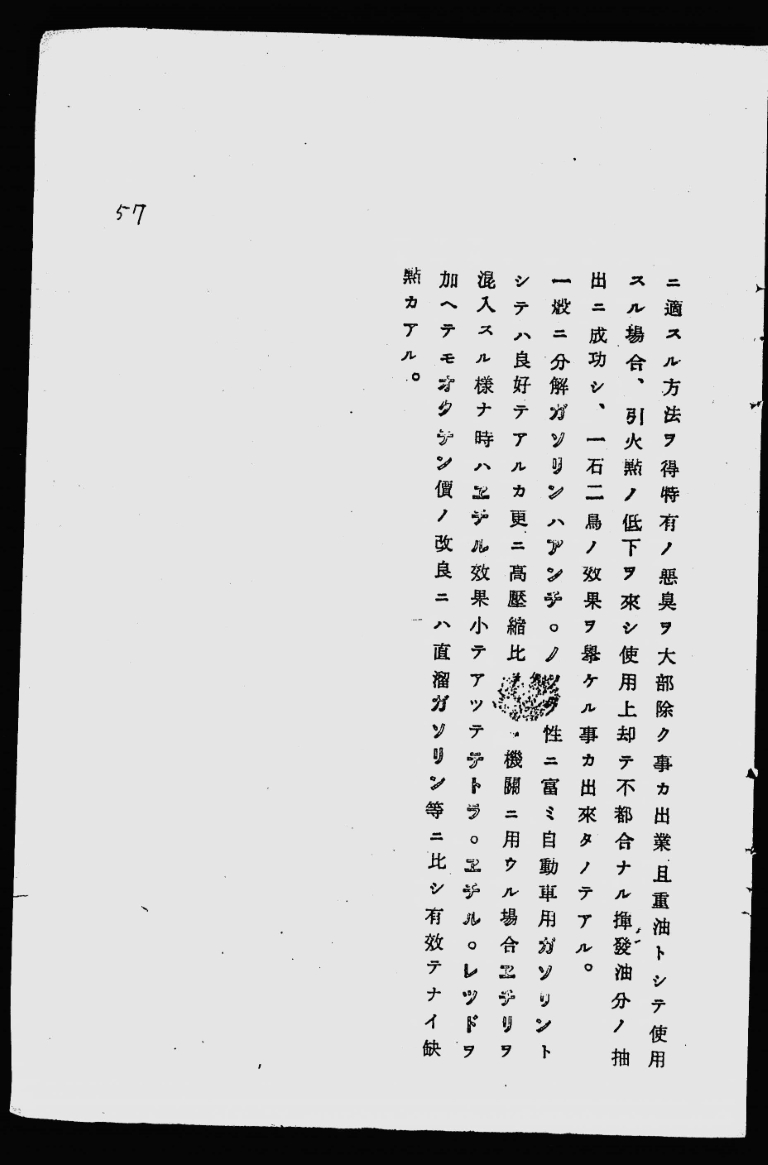 ニ適スル方法ヲ得特有ノ悪臭ヲ大部除ク事カ出業且重油トシテ使用
スル場合、引火點ノ低下ヲ來シ使用上却テ不都合ナル揮發油分ノ抽
出ニ成功シ、一石二鳥ノ效果ヲ擧ケル事カ出來タノテアル。
一般ニ分解ガソリンハアンチ。ノツク性ニ富ミ自動車用ガソリント
シテハ良好テアルカ更ニ高壓縮比機關ニ用ウル場合ヱチリヲ
混入スル様ナ時ハヱチル效果小テアツテテトラ。ヱチル。レツドヲ
加ヘテモオクテン價ノ改良ニハ直溜ガソリン等ニ比シ有效テナイ缺
點カアル。
57